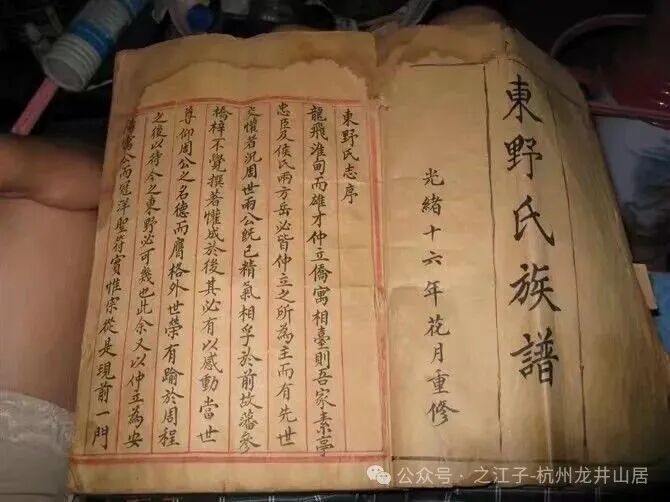 東野氏族譜
光緒十六年花月重修
東野氏志序
龍飛淮甸而雄才仲立僑寓相臺則吾家素亭
忠臣及侯氏兩方岳必皆仲立之所為主而有先世
交懽者況周世兩公既已精氣相孚於前故藩參
橋梓不覺撰著懽成於後其必有以感動當世
尊仰周公之名德而膺格外世榮有踰於周程
之後以待今之東野必可幾也此余又以仲立為安
富公而冠洋聖符實惟宗從是現前一門
公众号·之江子-杭州龙井山居